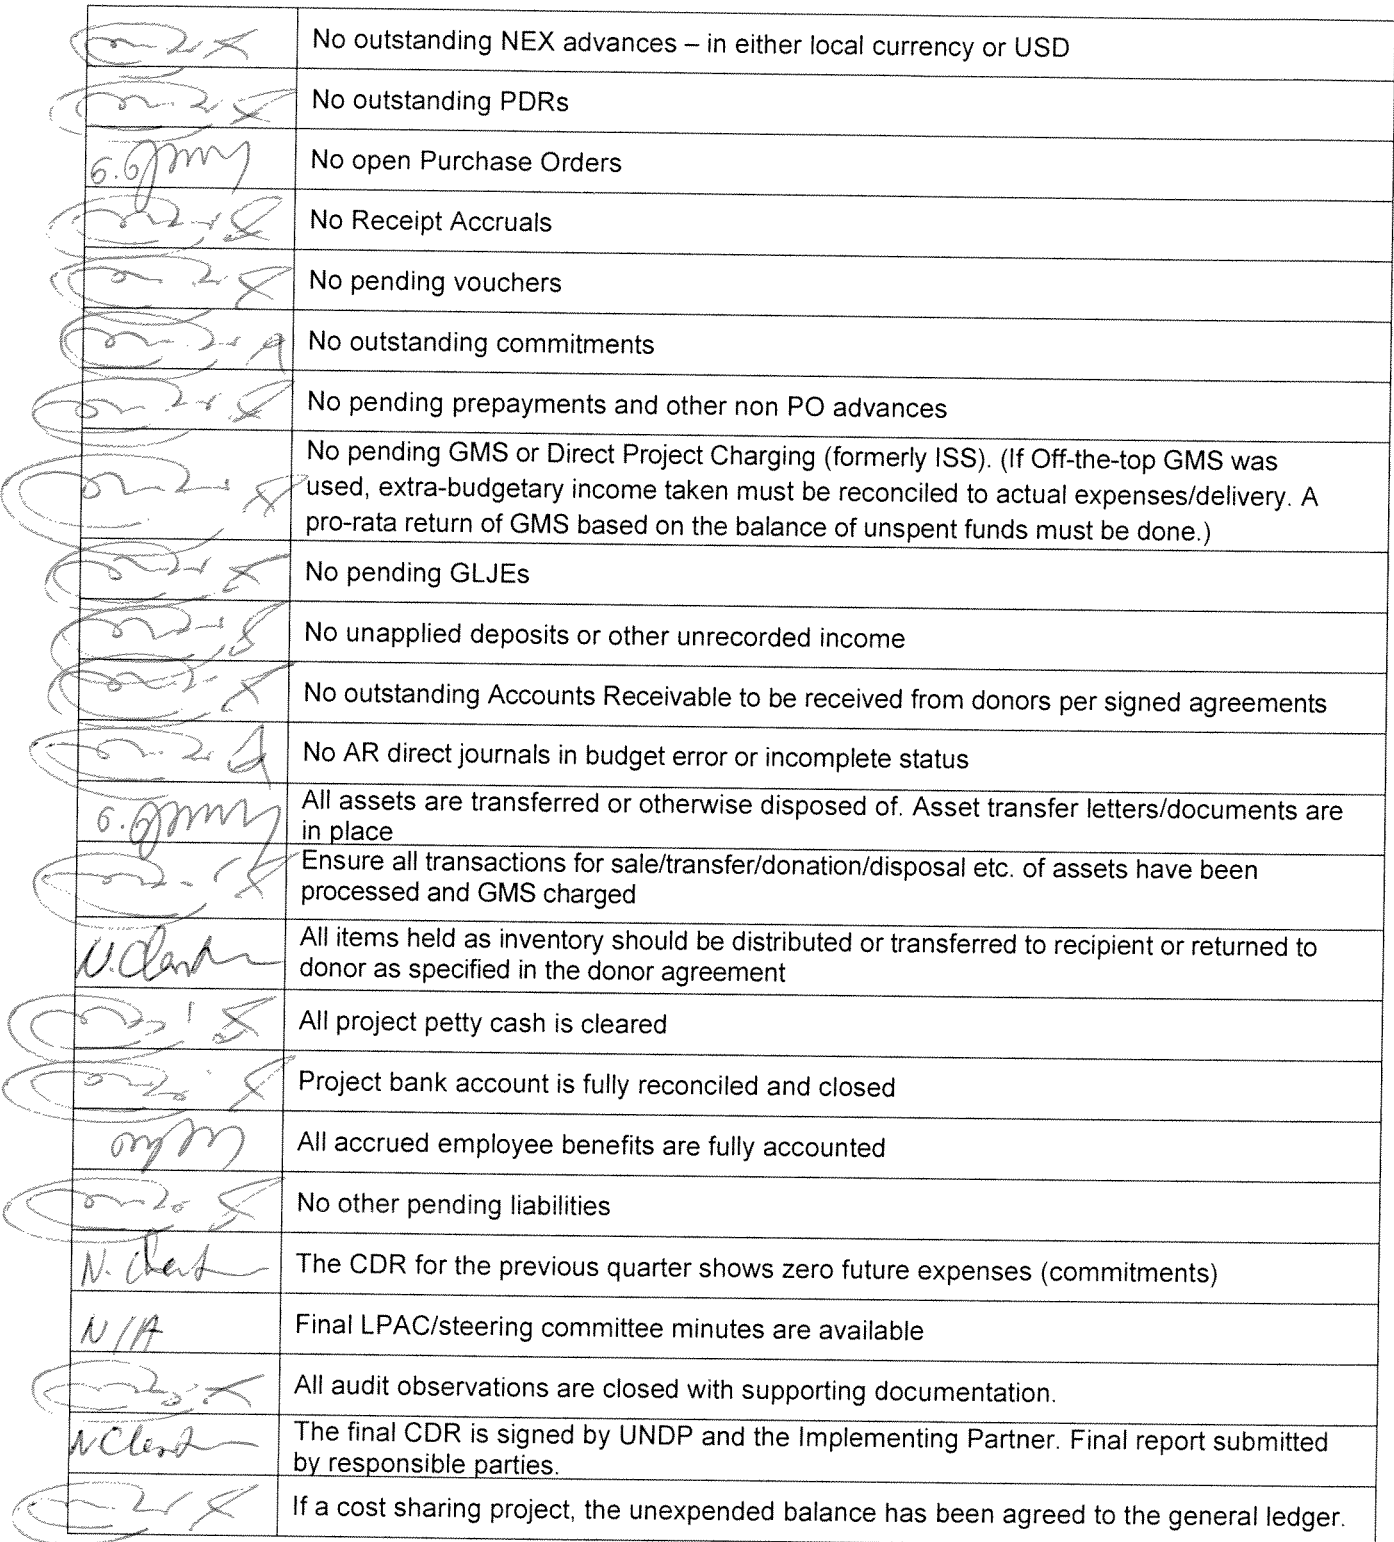 No outstanding NEX advances – in either local currency or USD
No outstanding PDRs
No open Purchase Orders
No Receipt Accruals
No pending vouchers
No outstanding commitments
No pending prepayments and other non PO advances
No pending GMS or Direct Project Charging (formerly ISS). (If Off-the-top GMS was
used, extra-budgetary income taken must be reconciled to actual expenses/delivery. A
pro-rata return of GMS based on the balance of unspent funds must be done.)
No pending GLJEs
No unapplied deposits or other unrecorded income
No outstanding Accounts Receivable to be received from donors per signed agreements
No AR direct journals in budget error or incomplete status
All assets are transferred or otherwise disposed of. Asset transfer letters/documents are
in place
Ensure all transactions for sale/transfer/donation/disposal etc. of assets have been
processed and GMS charged
All items held as inventory should be distributed or transferred to recipient or returned to
donor as specified in the donor agreement
All project petty cash is cleared
Project bank account is fully reconciled and closed
All accrued employee benefits are fully accounted
No other pending liabilities
The CDR for the previous quarter shows zero future expenses (commitments)
N/A Final LPAC/steering committee minutes are available
All audit observations are closed with supporting documentation.
The final CDR is signed by UNDP and the Implementing Partner. Final report submitted
by responsible parties.
If a cost sharing project, the unexpended balance has been agreed to the general ledger.